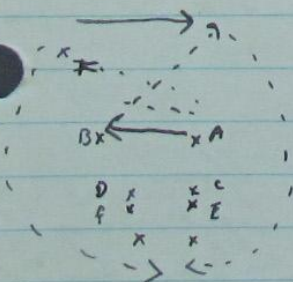 Bx x A
D x x C
F x x E
x x